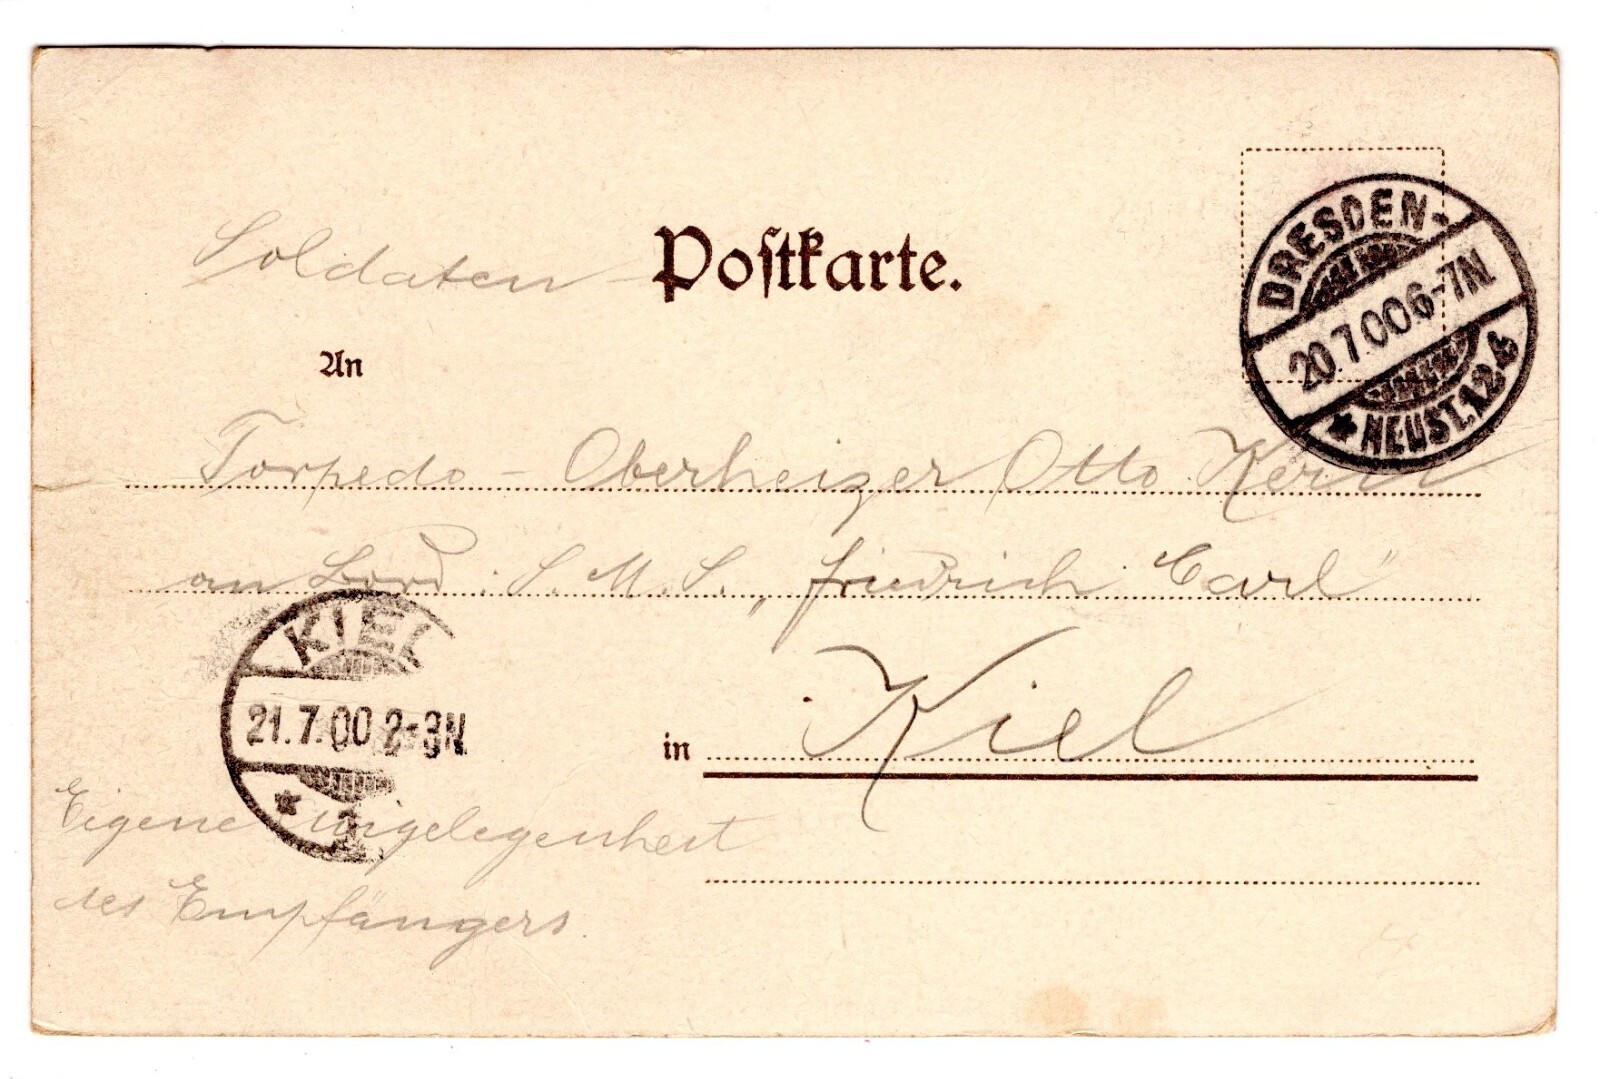 Soldaten - Postkarte.
DRESDEN-
20.7.00.6-7N
* NEUST. 1.2.6
An
Torpedo - Oberheizer Otto Kern
an Bord. S. M. S. „Friedrich Carl"
KIEL
21.7.00 2-3N
* 1
in Kiel
Eigene Angelegenheit
des Empfängers.